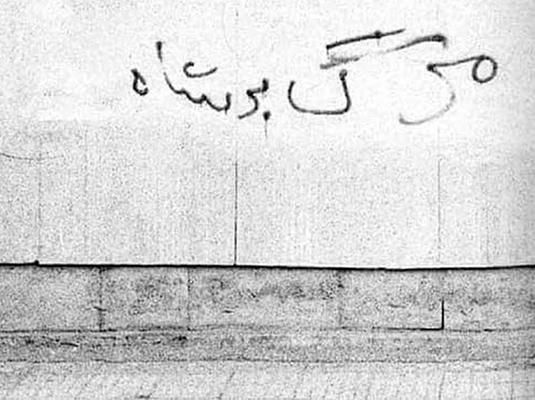 مرگ بر شاه